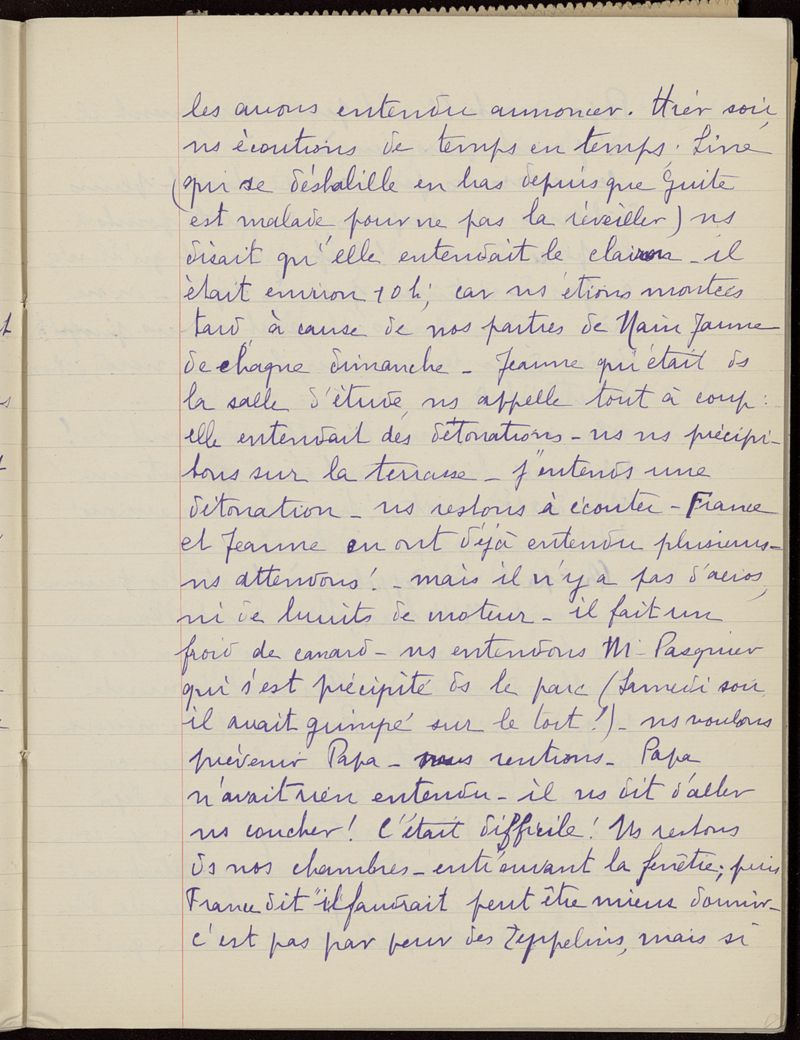 les avons entendu annoncer. Hier soir,
ns écoutions de temps en temps. Line
(qui se déshabille en bas depuis que Guite
est malade, pour ne pas la réveiller) ns
disait qu'elle entendait le clairon – il
était environ 10 h, car ns étions montées
tard, à cause de nos parties de Nain Jaune
de chaque dimanche – Jeanne qui était ds
la salle d'étude, ns appelle tout à coup :
elle entendait des détonations – ns ns précipi-
tons sur la terrasse – j'entends une
détonation – ns restons à écouter – France
et Jeanne en ont déjà entendu plusieurs –
ns attendons ! – mais il n'y a pas d'aéros,
ni de bruits de moteur – il fait un
froid de canard – ns entendons Mr Pasquier
qui s'est précipité ds le parc (Samedi soir,
il avait grimpé sur le toit !) – ns voulons
prévenir Papa – nous rentrons – Papa
n'avait rien entendu – il ns dit d'aller
ns coucher ! C'était difficile ! Ns restons
ds nos chambres – entr'ouvrant la fenêtre ; puis
France dit "il faudrait peut être mieux dormir –
c'est pas par peur des Zeppelins, mais si